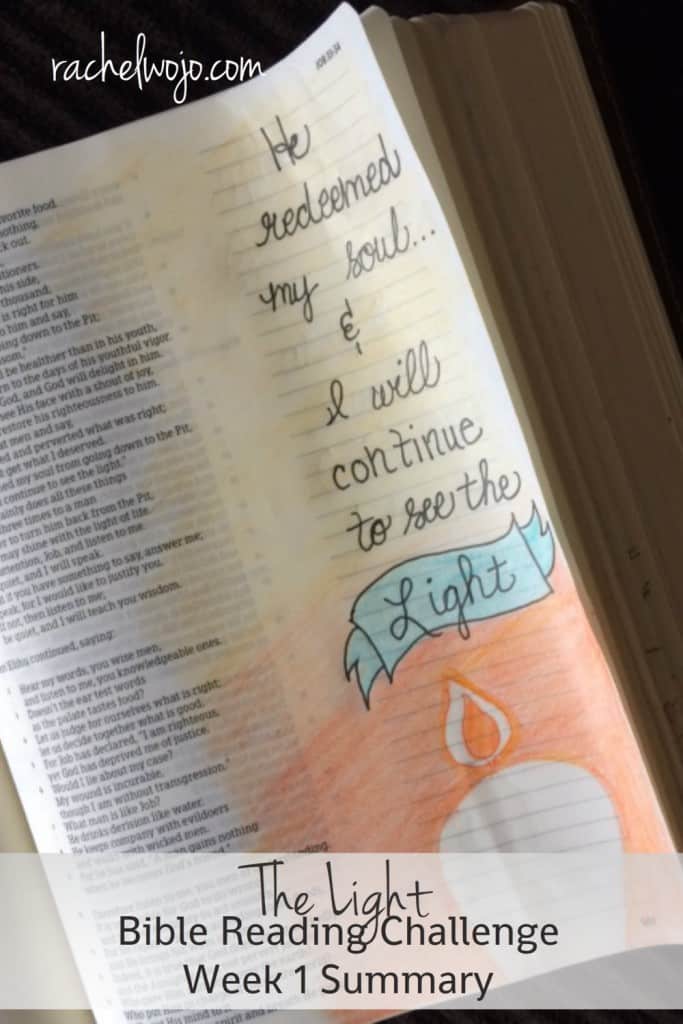 rachelwojo.com
He
redeemed
my soul...
&
I will
continue
to see the
Light
favorite food.
nothing.
k out.
his side,
thousand,
is right for him
to him and say,
going down to the Pit;
be healthier than in his youth,
to the days of his youthful vigor.
God, and God will delight in him.
see His face with a shout of joy,
restore his righteousness to him.
at men and say,
and perverted what was right;
get what I deserved.
my soul from going down to the Pit,
continue to see the light."
does all these things
three times to a man
to turn him back from the Pit,
may shine with the light of life.
attention, Job, and listen to me.
quiet, and I will speak.
if you have something to say, answer me;
speak, for I would like to justify you.
If not, then listen to me;
be quiet, and I will teach you wisdom.
Elihu continued, saying:
Hear my words, you wise men,
and listen to me, you knowledgeable ones.
Doesn't the ear test words
as the palate tastes food?
Let us judge for ourselves what is right;
let us decide together what is good.
For Job has declared, "I am righteous,
yet God has deprived me of justice.
Would I lie about my case?
My wound is incurable,
though I am without transgression."
What man is like Job?
He drinks derision like water.
He keeps company with evildoers
and walks with wicked men.
"A man gains nothing
The Light
Bible Reading Challenge
Week 1 Summary